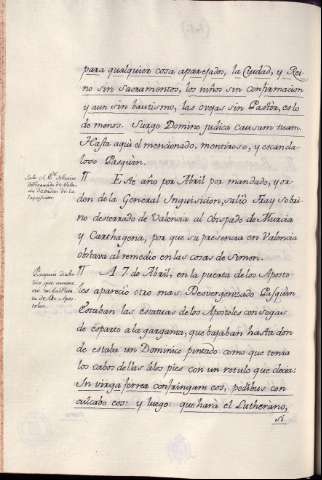 para qualquier cosa aparejados, la Ciudad, y Rei-
no sin Sacramentos, los niños sin confirmacion
y aun sin bautismo, las ovejas sin Pastor, es lo
de menos. Surge Domine judica causam tuam.
Hasta aqui el mencionado, monstruoso, y escanda-
loso Pasquin.
Sale el
desterrado de Valen-
cia
Inquisicion
¶ Este año por Abril por mandado, y or-
den de la General Inquisicion, salió Fray Sobri-
no desterrado de Valencia al Obispado de Murcia
y Carthagena, por que su presencia en Valencia
obstava al remedio en las cosas de Simon.
Pasquin
que
en la
ta de los Apos-
toles.
¶ A 7 de Abril, en la puerta de los Aposto-
les aparecio otro mas desvergonzado Pasquin
Estaban las estatuas de los Apostoles con sogas
de esparto a la garganta, que bajaban hasta don-
de estaba un Dominico pintado como que tenia
los cabos de ellas a los pies con un rotulo que decia:
In virga ferrea confringam eos, pedibus con-
culcabo eos: y luego que hará el Lutherano,
si